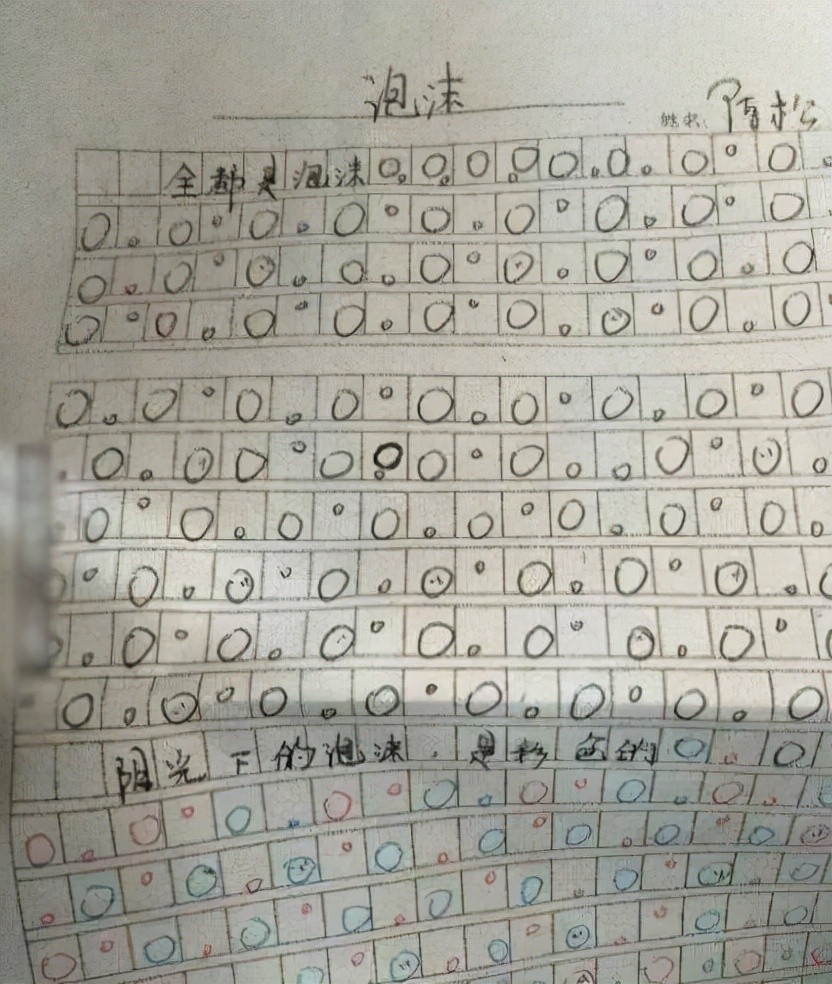 泡沫
姓名:陈松
全都是泡沫
阳光下的泡沫,是彩色的